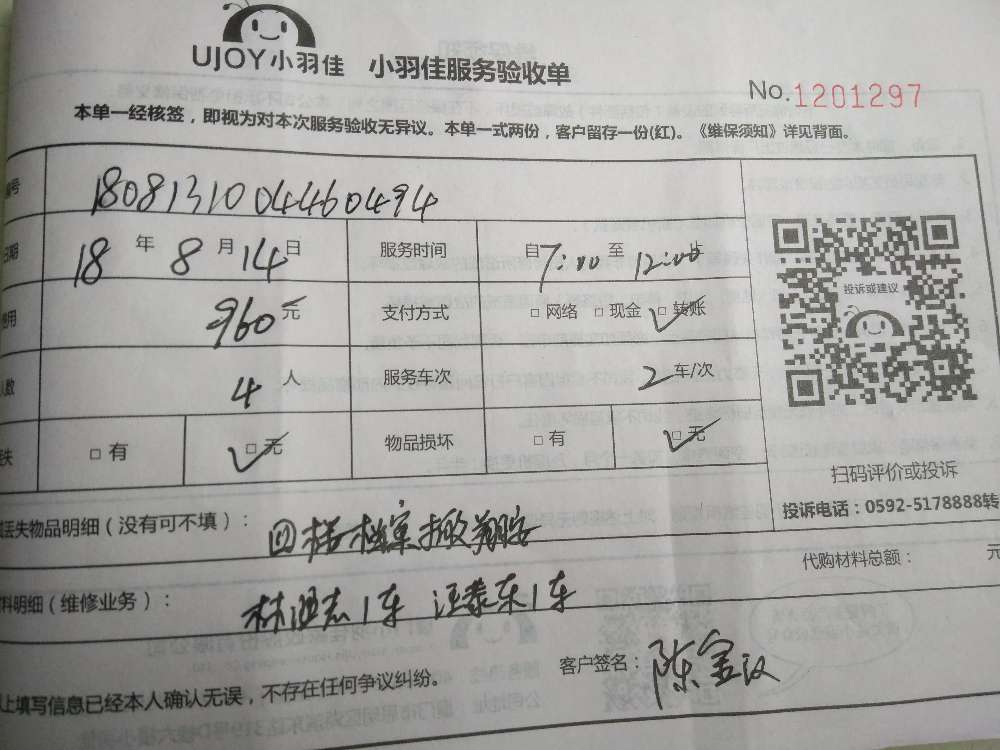 UJOY小羽佳 小羽佳服务验收单
No.1201297
本单一经核签，即视为对本次服务验收无异议。本单一式两份，客户留存一份(红)。《维保须知》详见背面。
号 180813100446 0494
日期 18 年 8 月 14 日 服务时间 自7:00 至 12:00止
用 960元 支付方式 □ 网络 □ 现金 □ 转账
人数 4 人 服务车次 2 车/次
失 □ 有 □ 无 物品损坏 □ 有 □ 无
投诉或建议
扫码评价或投诉
投诉电话：0592-5178888转
丢失物品明细（没有可不填）： 四楼档案搬翔安
代购材料总额： 元
料明细（维修业务）： 1车 1车
客户签名： 陈
上填写信息已经本人确认无误，不存在任何争议纠纷。